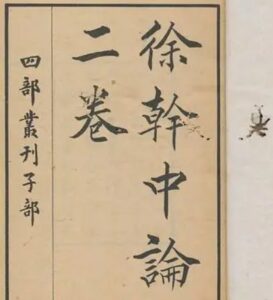 徐幹中論
二卷
四部叢刊子部